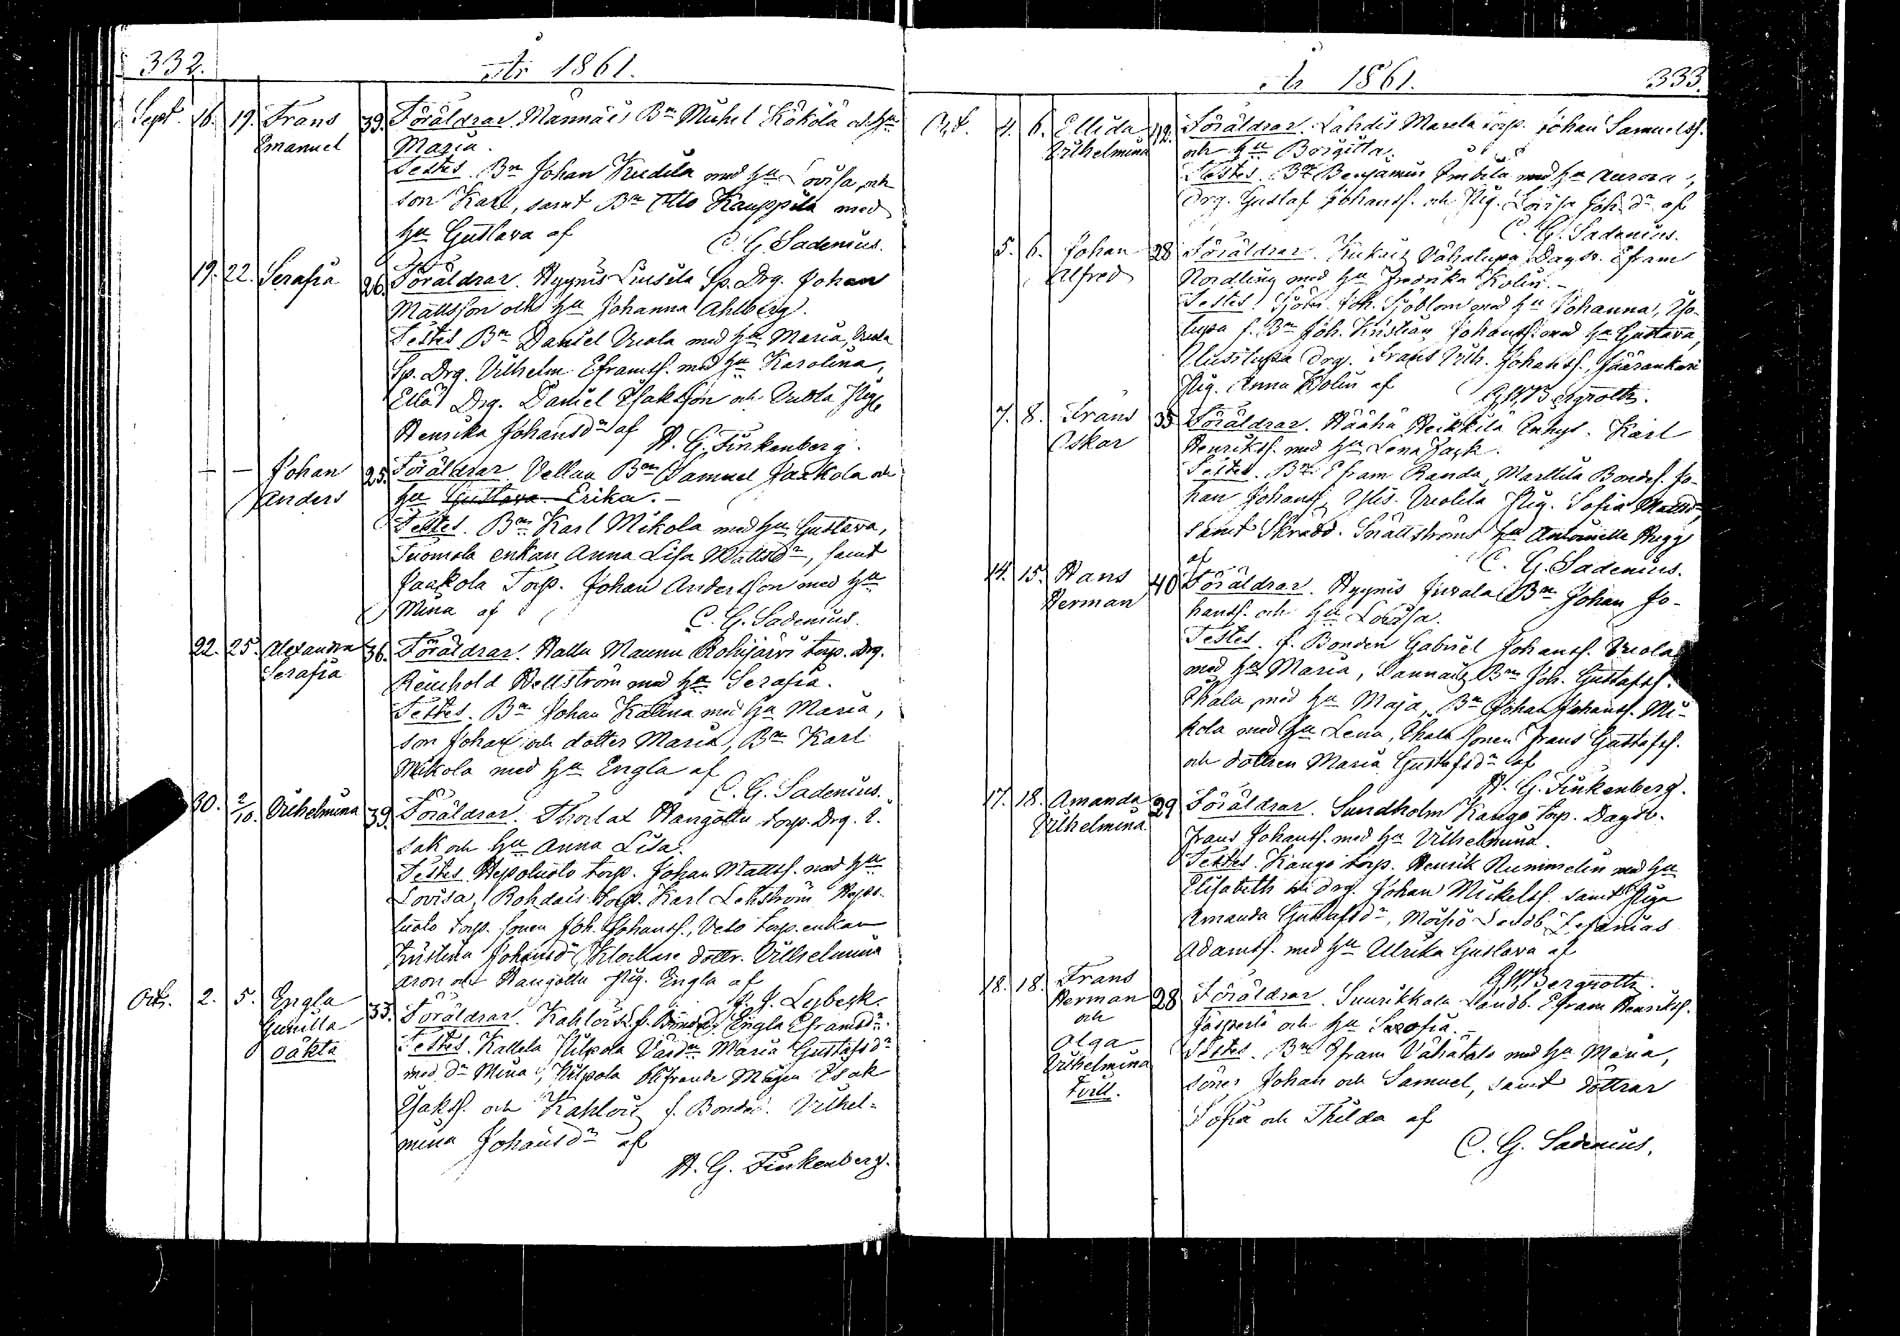 332.
År 1861.
Sept. 16. 19. Frans Emanuel 39. Föräldrar. Männäis Bn Mickel Käkölä och Hu
Maria.
Testes. Bn Johan Kredila med Hu Lovisa och
son Karl, samt Bn Otto Kauppila med
Hu Gustava af C. G. Sadenius.
19. 22. Serafia 26. Föräldrar. Hyynis Sp. Drg. Johan
Mattsson och Hu Johanna Ahlberg.
Testes Bn Daniel Uola med Hu Maria,
Sp. Drg. Vilhelm Eframss. med Hu Karolina,
Ella Drg. Daniel Isaksson och Pig.
Henrika Johansdr af H. G. Finkenberg.
— — Johan Anders 25. Föräldrar Vellua Bn Samuel Jaakola och
Hu Gustava Erika. –
Testes. Bn Karl Mikola med Hu Gustava,
Tuomola enkan Anna Lisa Mattsdr, samt
Jaakola Torp. Johan Andersson med Hu
Mina af C. G. Sadenius.
22. 25. Alexandra Serafia 36. Föräldrar. Hallu Maunu Kohijärvi torp. drg.
Reinhold Hellström med Hu Serafia.
Testes. Bn Johan Kallina med Hu Maria,
son Johan och dotter Maria, Bn Karl
Mikola med Hu Engla af
C. G. Sadenius.
30. 2/10. Vilhelmina 39. Föräldrar. Thorlax Hangöttu torp. Drg. I-
sak och Hu Anna Lisa.
Testes Hepoluoto torp. Johan Mattss. med Hu
Lovisa, Rohdais torp. Karl Lehström Hepo-
luoto torp. sonen Joh. Johanss., Velo torp. enkan
Kristina Johansdr Klockare dottr. Vilhelmina
Aron och Hangöttu Pig. Engla af
J. J. Lybeck.
Octb. 2. 5. Engla Gunilla oäkta 33. Föräldrar. Kahlois f. Bondd. Engla Eframsdr.
Testes. Kallela Hilpola Värdn Maria Gustafsdr
med dr Mina, Hilpola Mågen Isak
Isakss. och Kahlois f. Bondd. Vilhel-
mina Johansdr af
H. G. Finkenberg.
År 1861.
333.
Octb. 4. 6. Ellida Vilhelmina 42. Föräldrar. Lahdis Marela torp. Johan Samuelss.
och Hu Borgitta.
Testes. Bn Benjamin Imbila med Hu Aurora,
Drg. Gustaf Johanss. och Pig. Lovisa Joh.dr af
C. G. Sadenius.
5. 6. Johan Alfred 28 Föräldrar. Vähälupa Dagsv. Efram
Nordling med Hu Fredrika Kolin. –
Testes. Sjöm. Joh. Sjöblom med Hu Johanna, Iso-
lupa f. Bn Joh. Kristian Johanss. med Hu Gustava,
Uusilupa drg. Frans Vilh. Johanss., Jäärankari
Pig. Anna Kolin af G. W. Bergroth.
7. 8. Frans Oskar 35 Föräldrar. Häähä Heikkilä Inhys. Karl
Henrikss. med Hu Lena Jack.
Testes. Bn Efram Randa, Marttila Bondes. Jo-
han Johanss., Ylis. Uolila Pig. Sofia Mattsdr,
samt Skrädd. Snällströms Hu Antoinette Hugg
af C. G. Sadenius.
14. 15. Hans Herman 40 Föräldrar. Hyynis Juvala Bn Johan Jo-
hanss. och Hu Lovisa.
Testes. f. Bonden Gabriel Johanss. Uola
med Hu Maria, Dannais Bn Joh. Gustafss.
Ihala med Hu Maja, Bn Johan Johanss. Mi-
kola med Hu Lena, Ihala sonen Frans Gustafss.
och dottren Maria Gustafsdr af
H. G. Finkenberg.
17. 18. Amanda Vilhelmina 29 Föräldrar. Sundholm Kango torp. Dagsv.
Frans Johanss. med Hu Vilhelmina.
Testes. Kango torp. Henrik Nummelin med Hu
Elisabeth drg. Johan Mickelss. samt Piga
Amanda Gustafsdr, Moisio Landb. Zefanias
Adamss. med Hu Ulrika Gustava af
G. W. Bergroth.
18. 18. Frans Herman och Olga Vilhelmina tvill. 28 Föräldrar. Suurikkala Landb. Efram Henrikss.
Jasperlä och Hu Serafia. –
Testes. Bn Efram Vähätalo med Hu Maria,
söner Johan och Samuel, samt döttrar
Sofia och Thilda af
C. G. Sadenius.